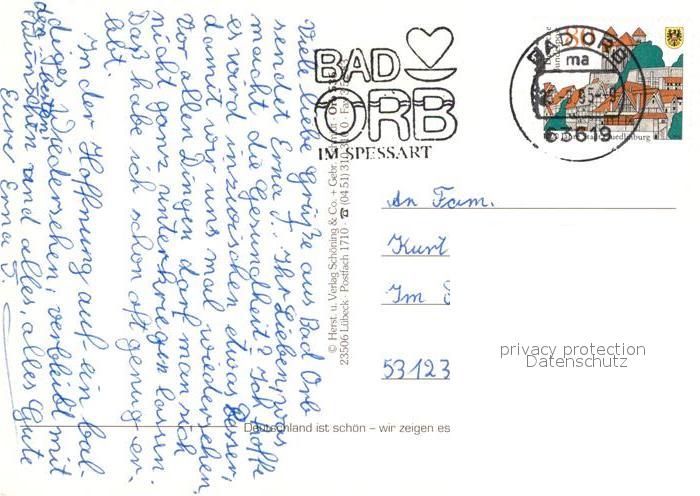 Viele liebe Grüße aus Bad Orb
sendet Erna J.. Ihr Lieben, was
macht die Gesundheit? Ich hoffe
es wird inzwischen etwas besser,
damit wir uns mal wiedersehen.
Vor allen Dingen darf man sich
nicht ganz unterkriegen lassen.
Daß habe ich schon oft genug er-
lebt.
In der Hoffnung auf ein bal-
diges Wiedersehen, verbleibt mit
den besten
Wünschen und alles, alles Gute
Eure Erna J.
© Herst. u. Verlag Schöning & Co. + Gebr. Schmidt
23506 Lübeck · Postfach 1710 · ☎ (04 51) 310
BAD
ORB
IM SPESSART
80
BAD ORB
ma
63619
An Fam.
Kurt
Im
53123
privacy protection
Datenschutz
Deutschland ist schön – wir zeigen es